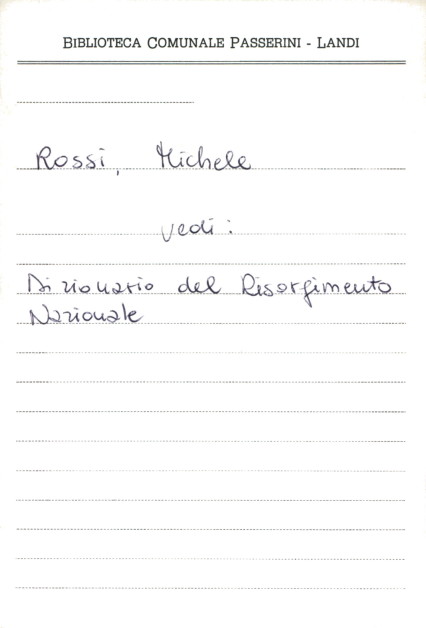 BIBLIOTECA COMUNALE PASSERINI - LANDI
Rossi, Michele
vedi:
Dizionario del Risorgimento
Nazionale